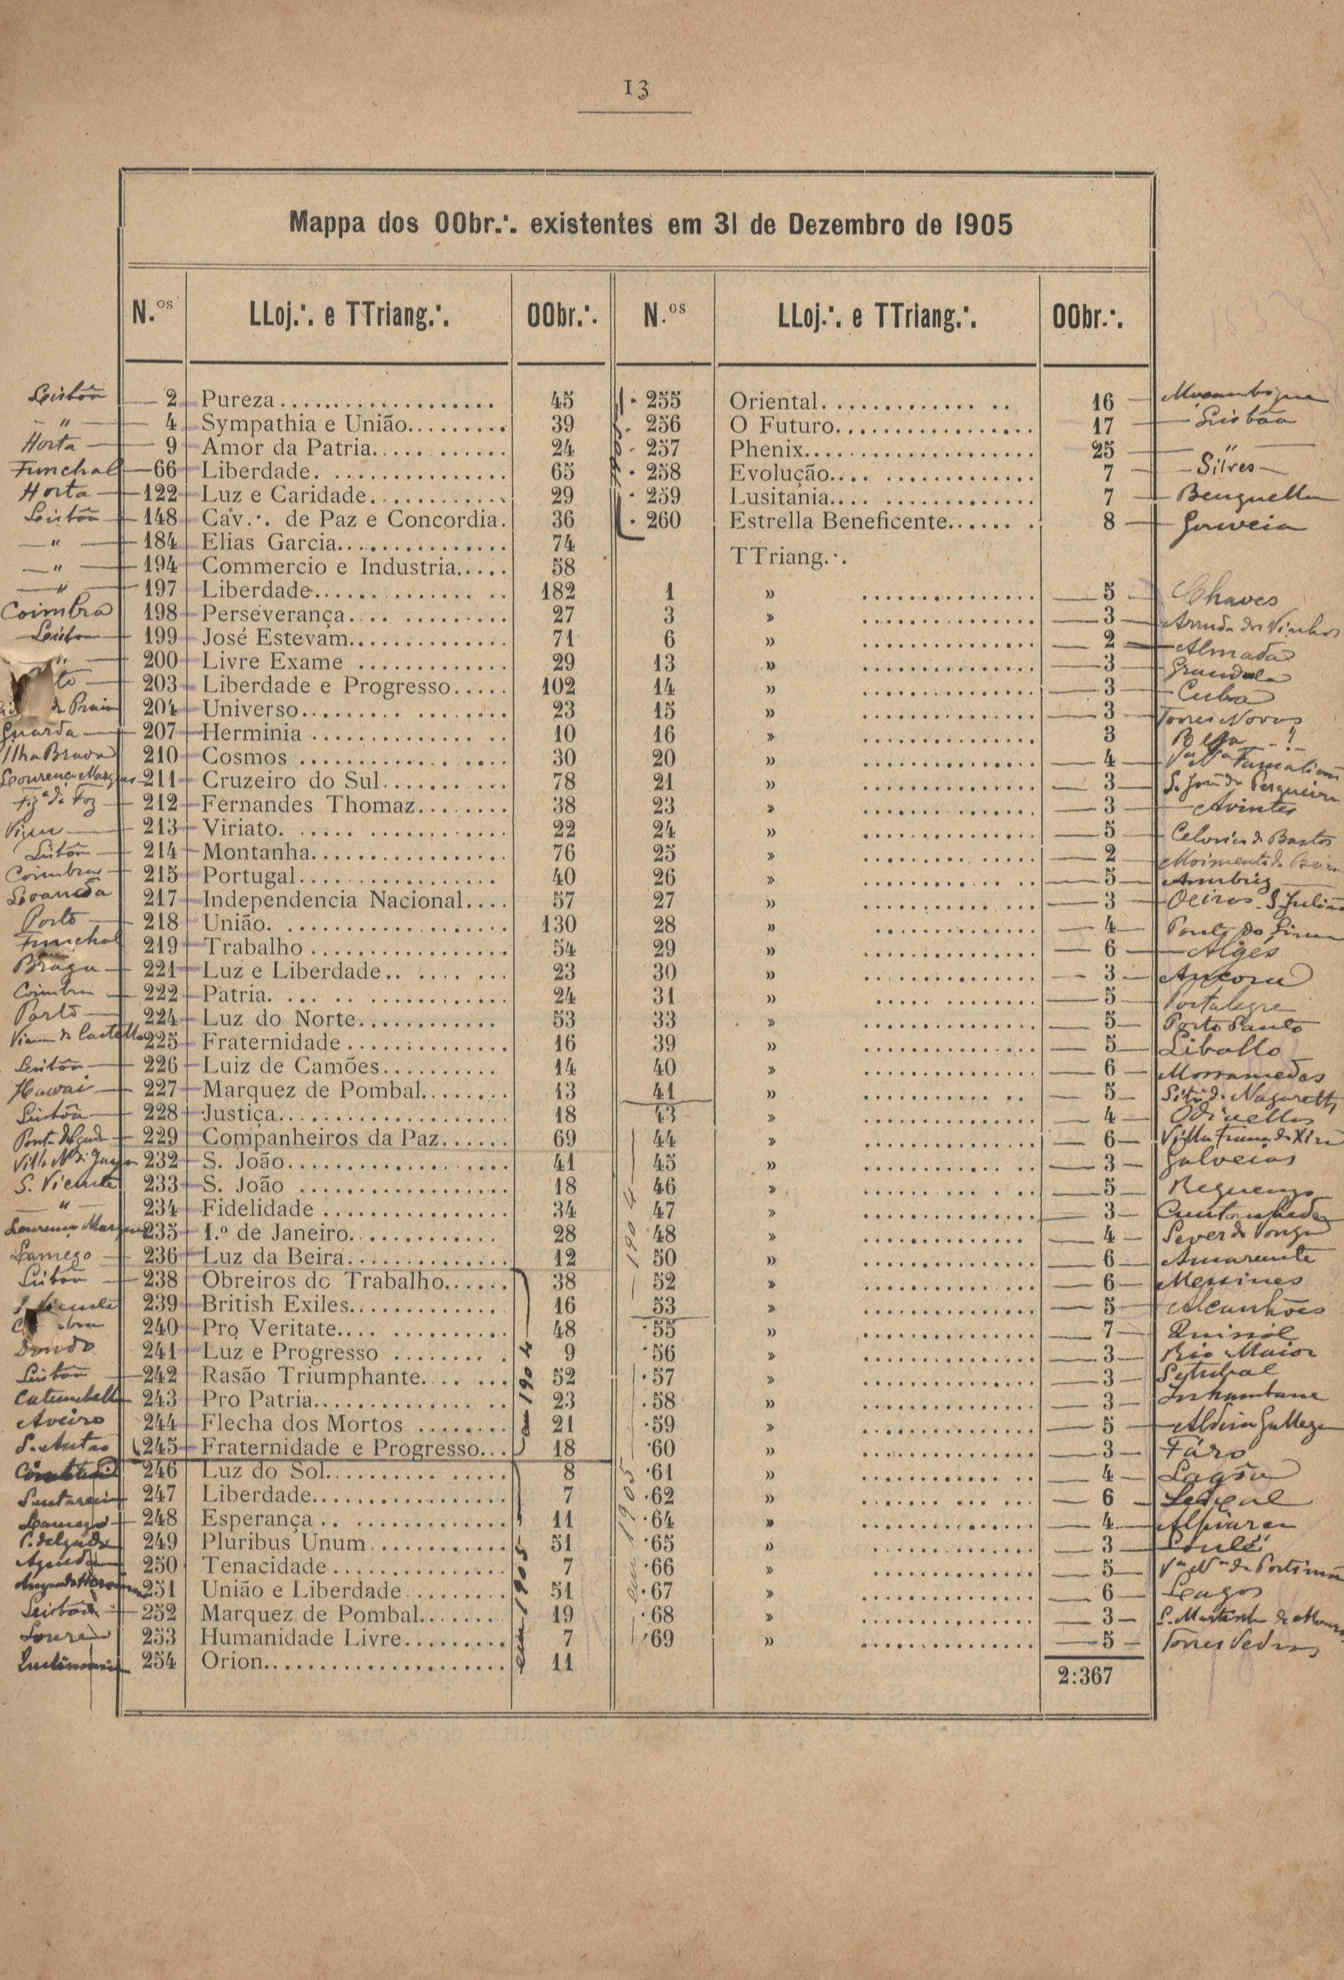 13
Mappa dos OObr.·. existentes em 31 de Dezembro de 1905
N.os LLoj.·. e TTriang.·. OObr.·. N.os LLoj.·. e TTriang.·. OObr.·.
Lisbôa 2 Pureza 45 255 Oriental 16 Moçambique
" 4 Sympathia e União 39 256 O Futuro 17 Lisbôa
Horta 9 Amor da Patria 24 257 Phenix 25 "
Funchal 66 Liberdade 65 258 Evolução 7 Silves
Horta 122 Luz e Caridade 29 259 Lusitania 7 Benguella
Lisbôa 148 Cav.·. de Paz e Concordia. 36 260 Estrella Beneficente 8 Gouveia
" 184 Elias Garcia 74
TTriang.·.
" 194 Commercio e Industria 58
" 197 Liberdade 182 1 » 5 Chaves
Coimbra 198 Perseverança 27 3 » 3 Arruda dos Vinhos
Lisboa 199 José Estevam 71 6 » 2 Almada
" 200 Livre Exame 29 13 » 3 Grandola
203 Liberdade e Progresso 102 14 » 3 Cuba
da Praia 204 Universo 23 15 » 3 Torres Novas
Guarda 207 Herminia 10 16 » 3 Beja
Ilha Brava 210 Cosmos 30 20 » 4 Famalicão
Lourenço Marques 211 Cruzeiro do Sul 78 21 » 3 S. João da Pesqueira
Figª da Foz 212 Fernandes Thomaz 38 23 » 3 Avintes
Vizeu 213 Viriato 22 24 » 5 Celorico de Bastos
Lisbôa 214 Montanha 76 25 » 2 Moimenta da Beira
Coimbra 215 Portugal 40 26 » 5 Ambriz
Loanda 217 Independencia Nacional 57 27 » 3 Oeiras S. Julião
Porto 218 União 130 28 » 4 Ponte do Lima
Funchal 219 Trabalho 54 29 » 6 Algés
Braga 221 Luz e Liberdade 23 30 » 3 Ancora
Coimbra 222 Patria 24 31 » 5 Portalegre
Porto 224 Luz do Norte 53 33 » 5 Porto Santo
Viana do Castello 225 Fraternidade 16 39 » 5 Libollo
Lisbôa 226 Luiz de Camões 14 40 » 6 Mossamedes
Hawai 227 Marquez de Pombal 13 41 » 5 Sitio da Nazareth
Lisbôa 228 Justiça 18 43 » 4 Odivellas
Ponta Delgada 229 Companheiros da Paz 69 44 » 6 Villa Franca de Xira
Villa Nª de Gaya 232 S. João 41 45 » 3 Galveias
S. Vicente 233 S. João 18 46 » 5 Reguengo
" 234 Fidelidade 34 47 » 3 Cantanhede
Lourenço Marques 235 1.º de Janeiro 28 48 » 4 Sever do Vouga
Lamego 236 Luz da Beira 12 50 » 6 Amarante
Lisbôa 238 Obreiros do Trabalho 38 52 » 6 Messines
239 British Exiles 16 53 » 5 Alcanhões
240 Pro Veritate 48 55 » 7
Dondo 241 Luz e Progresso 9 56 » 3 Rio Maior
Lisbôa 242 Rasão Triumphante 52 57 » 3 Setubal
Catumbella 243 Pro Patria 23 58 » 3 Inhambane
Aveiro 244 Flecha dos Mortos 21 59 » 5 Aldeia Gallega
S. Antão 245 Fraternidade e Progresso 18 60 » 3 Fáro
246 Luz do Sol 8 61 » 4 Lagôa
Santarem 247 Liberdade 7 62 » 6
Lamego 248 Esperança 11 64 » 4 Alpiarça
P. Delgada 249 Pluribus Unum 51 65 » 3 Loulé
Agueda 250 Tenacidade 7 66 » 5 Vª Nª de Portimão
Angra do Heroismo 251 União e Liberdade 51 67 » 6 Lagos
Lisbôa 252 Marquez de Pombal 19 68 » 3
253 Humanidade Livre 7 69 » 5 Torres Vedras
254 Orion 11
2:367
em 1904
em 1905
1904
em 1905